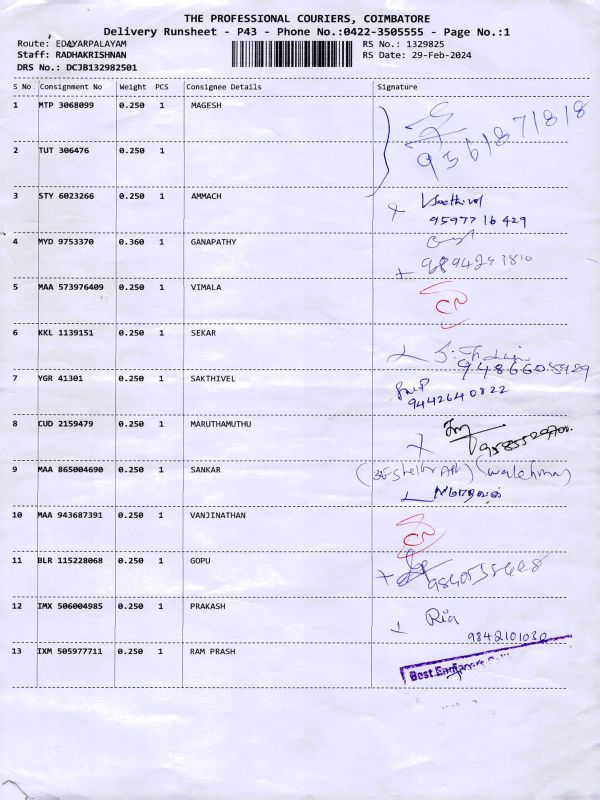 THE PROFESSIONAL COURIERS, COIMBATORE
Delivery Runsheet - P43 - Phone No.:0422-3505555 - Page No.:1
Route: EDAYARPALAYAM RS No.: 1329825
Staff: RADHAKRISHNAN RS Date: 29-Feb-2024
DRS No.: DCJB132982501
S No Consignment No Weight PCS Consignee Details Signature
1 MTP 3068099 0.250 1 MAGESH
9361871818
2 TUT 306476 0.250 1
3 STY 6023266 0.250 1 AMMACH Sakthivel
9597716429
4 MYD 9753370 0.360 1 GANAPATHY
9894291810
5 MAA 573976409 0.250 1 VIMALA CN
6 KKL 1139151 0.250 1 SEKAR
9486605929
7 YGR 41301 0.250 1 SAKTHIVEL
9442640822
8 CUD 2159479 0.250 1 MARUTHAMUTHU
9 MAA 865004690 0.250 1 SANKAR
10 MAA 943687391 0.250 1 VANJINATHAN CN
11 BLR 115228068 0.250 1 GOPU
12 IMX 506004985 0.250 1 PRAKASH Ria
9842101030
13 IXM 505977711 0.250 1 RAM PRASH
Best